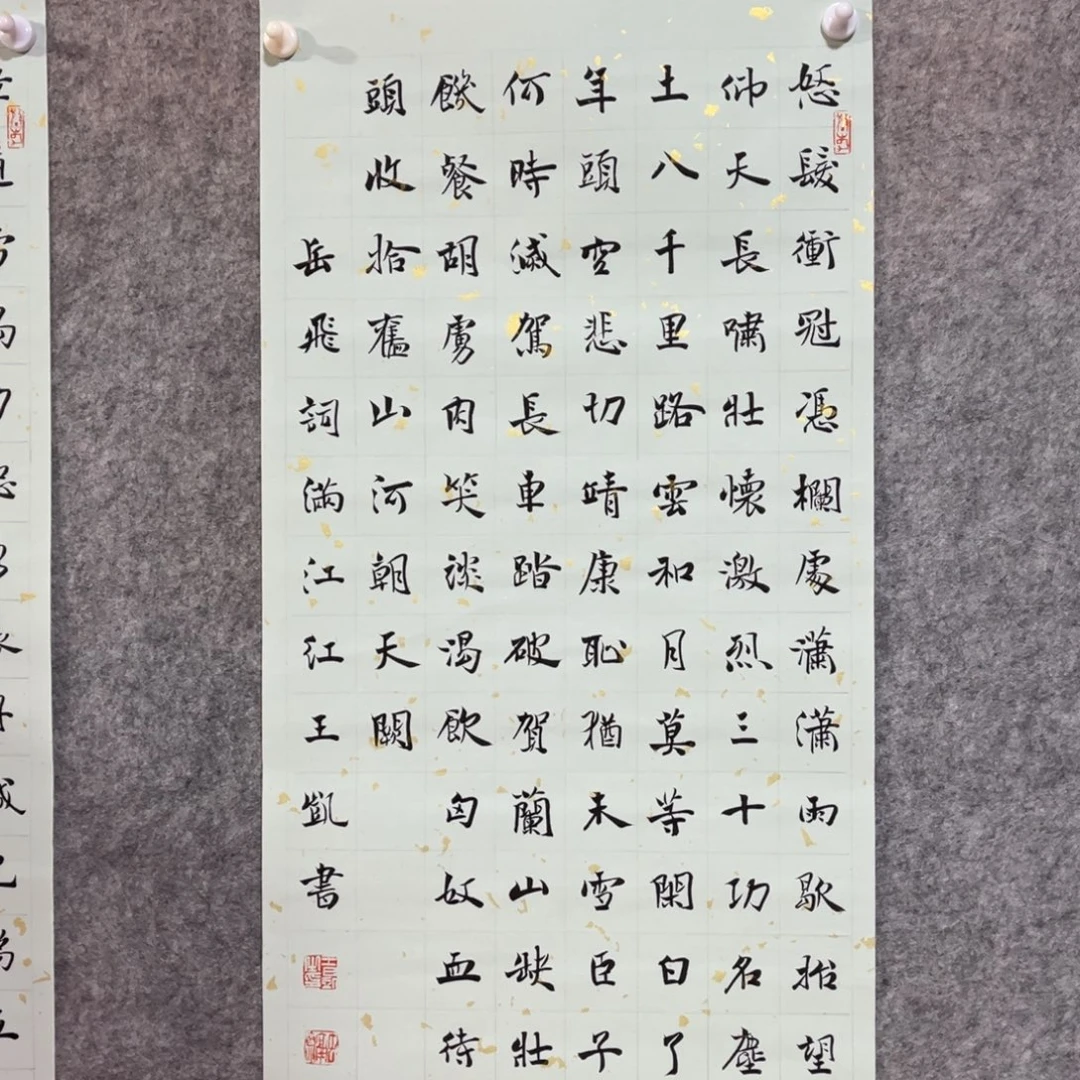 怒髮衝冠憑欄處瀟瀟雨歇抬望
仰天長嘯壯懷激烈三十功名塵
土八千里路雲和月莫等閑白了
年頭空悲切靖康恥猶未雪臣子
何時滅駕長車踏破賀蘭山缺壯
饑餐胡虜肉笑談渴飲匈奴血待
頭收拾舊山河朝天闕
岳飛詞滿江紅王凱書